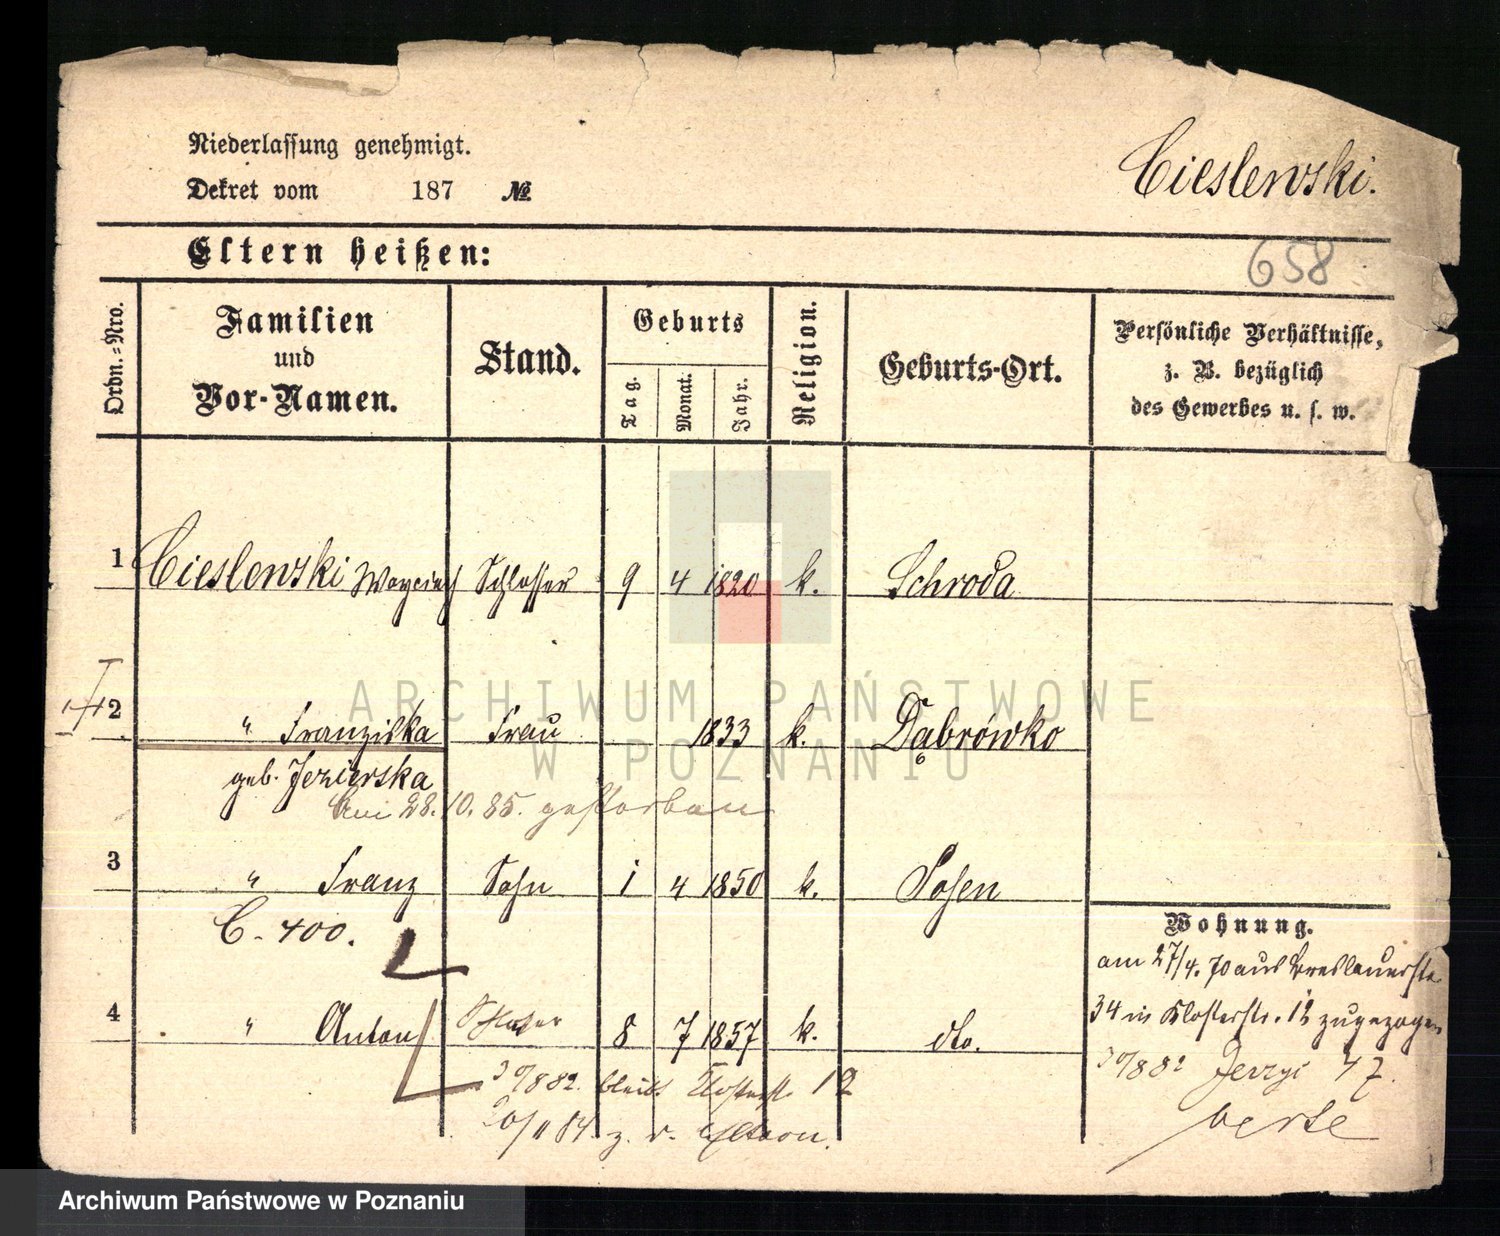 Niederlassung genehmigt.
Dekret vom 187 №
Cieslewski.
Eltern heißen:
658
Ordn.-Nro.
Familien
und
Vor-Namen.
Stand.
Geburts
Tag.
Monat.
Jahr.
Religion.
Geburts-Ort.
Persönliche Verhältnisse,
z. B. bezüglich
des Gewerbes u. s. w.
1 Cieslewski Woyciech Schlosser 9 4 1820 k. Schroda
2 " Franziska Frau 1833 k. Dąbrówko
geb. Jezierska
Am 28.10.85. gestorben
3 " Franz Sohn 1 4 1850 k. Posen
C. 400.
Wohnung.
am 27/4. 70 aus Breslauerstr
34 in Klosterstr. 12 zugezogen
4 " Anton 8 7 1857 k. dto.
30/8 82 Jerzyi 47.
30/8 82. bleibt Klosterst. 12
20/11 84 z. v. Eltern.
verte
ARCHIWUM PAŃSTWOWE
W POZNANIU
Archiwum Państwowe w Poznaniu